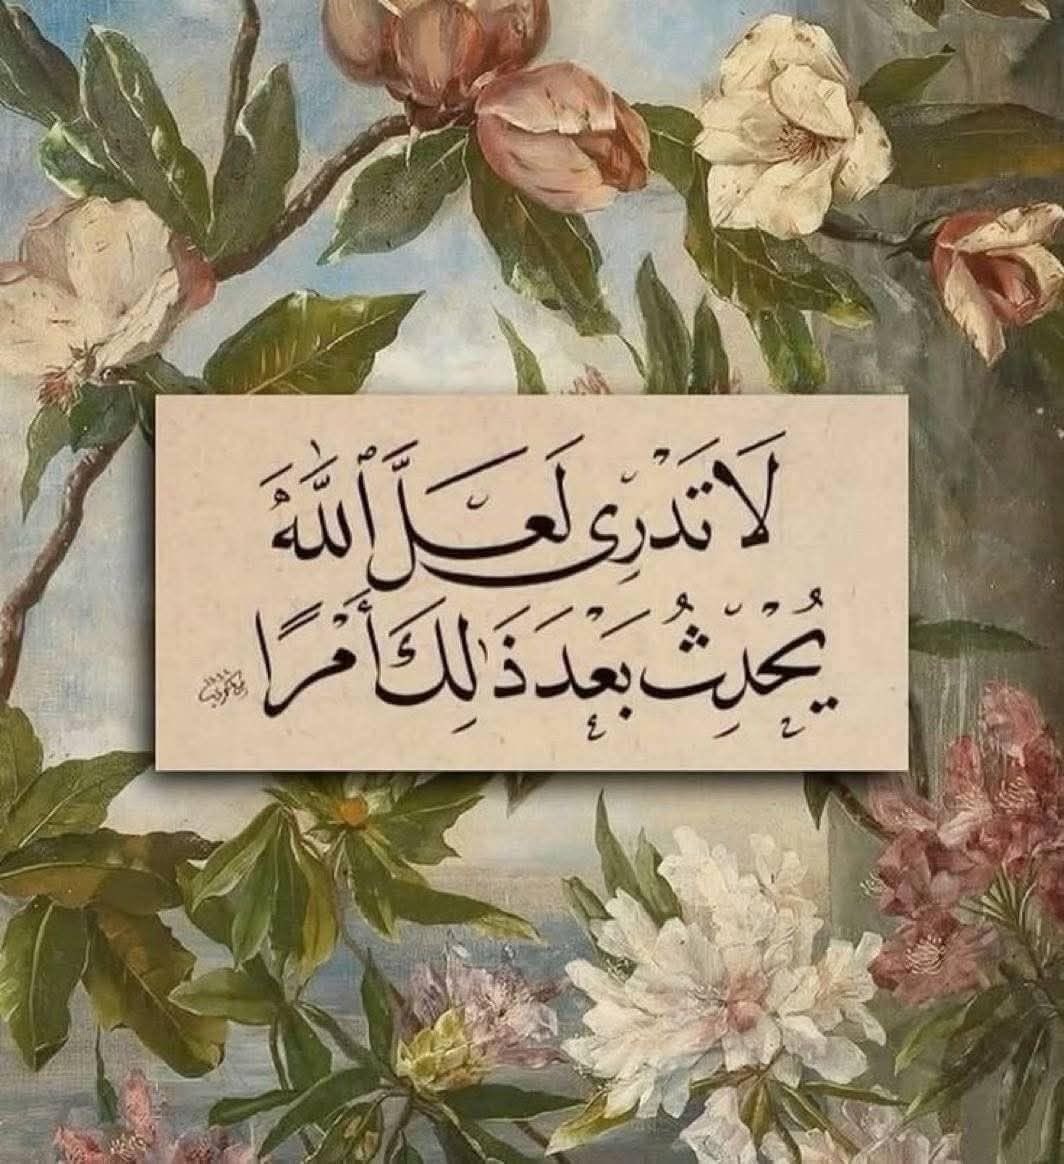 لَا تَدْرِى لَعَلَّ ٱللَّهَ
يُحْدِثُ بَعْدَ ذَٰلِكَ أَمْرًا